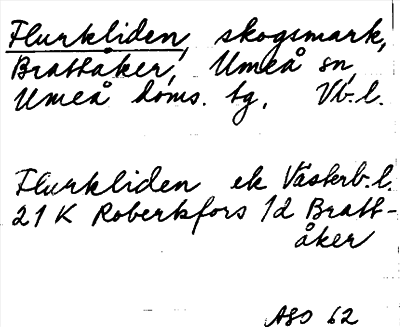 Flurkliden, skogsmark,
Brattåker, Umeå sn,
Umeå doms. tg, Vb.l.
Flurkliden ek Västerb.l.
21 K Robertsfors 1d Bratt-
åker
ASO 62